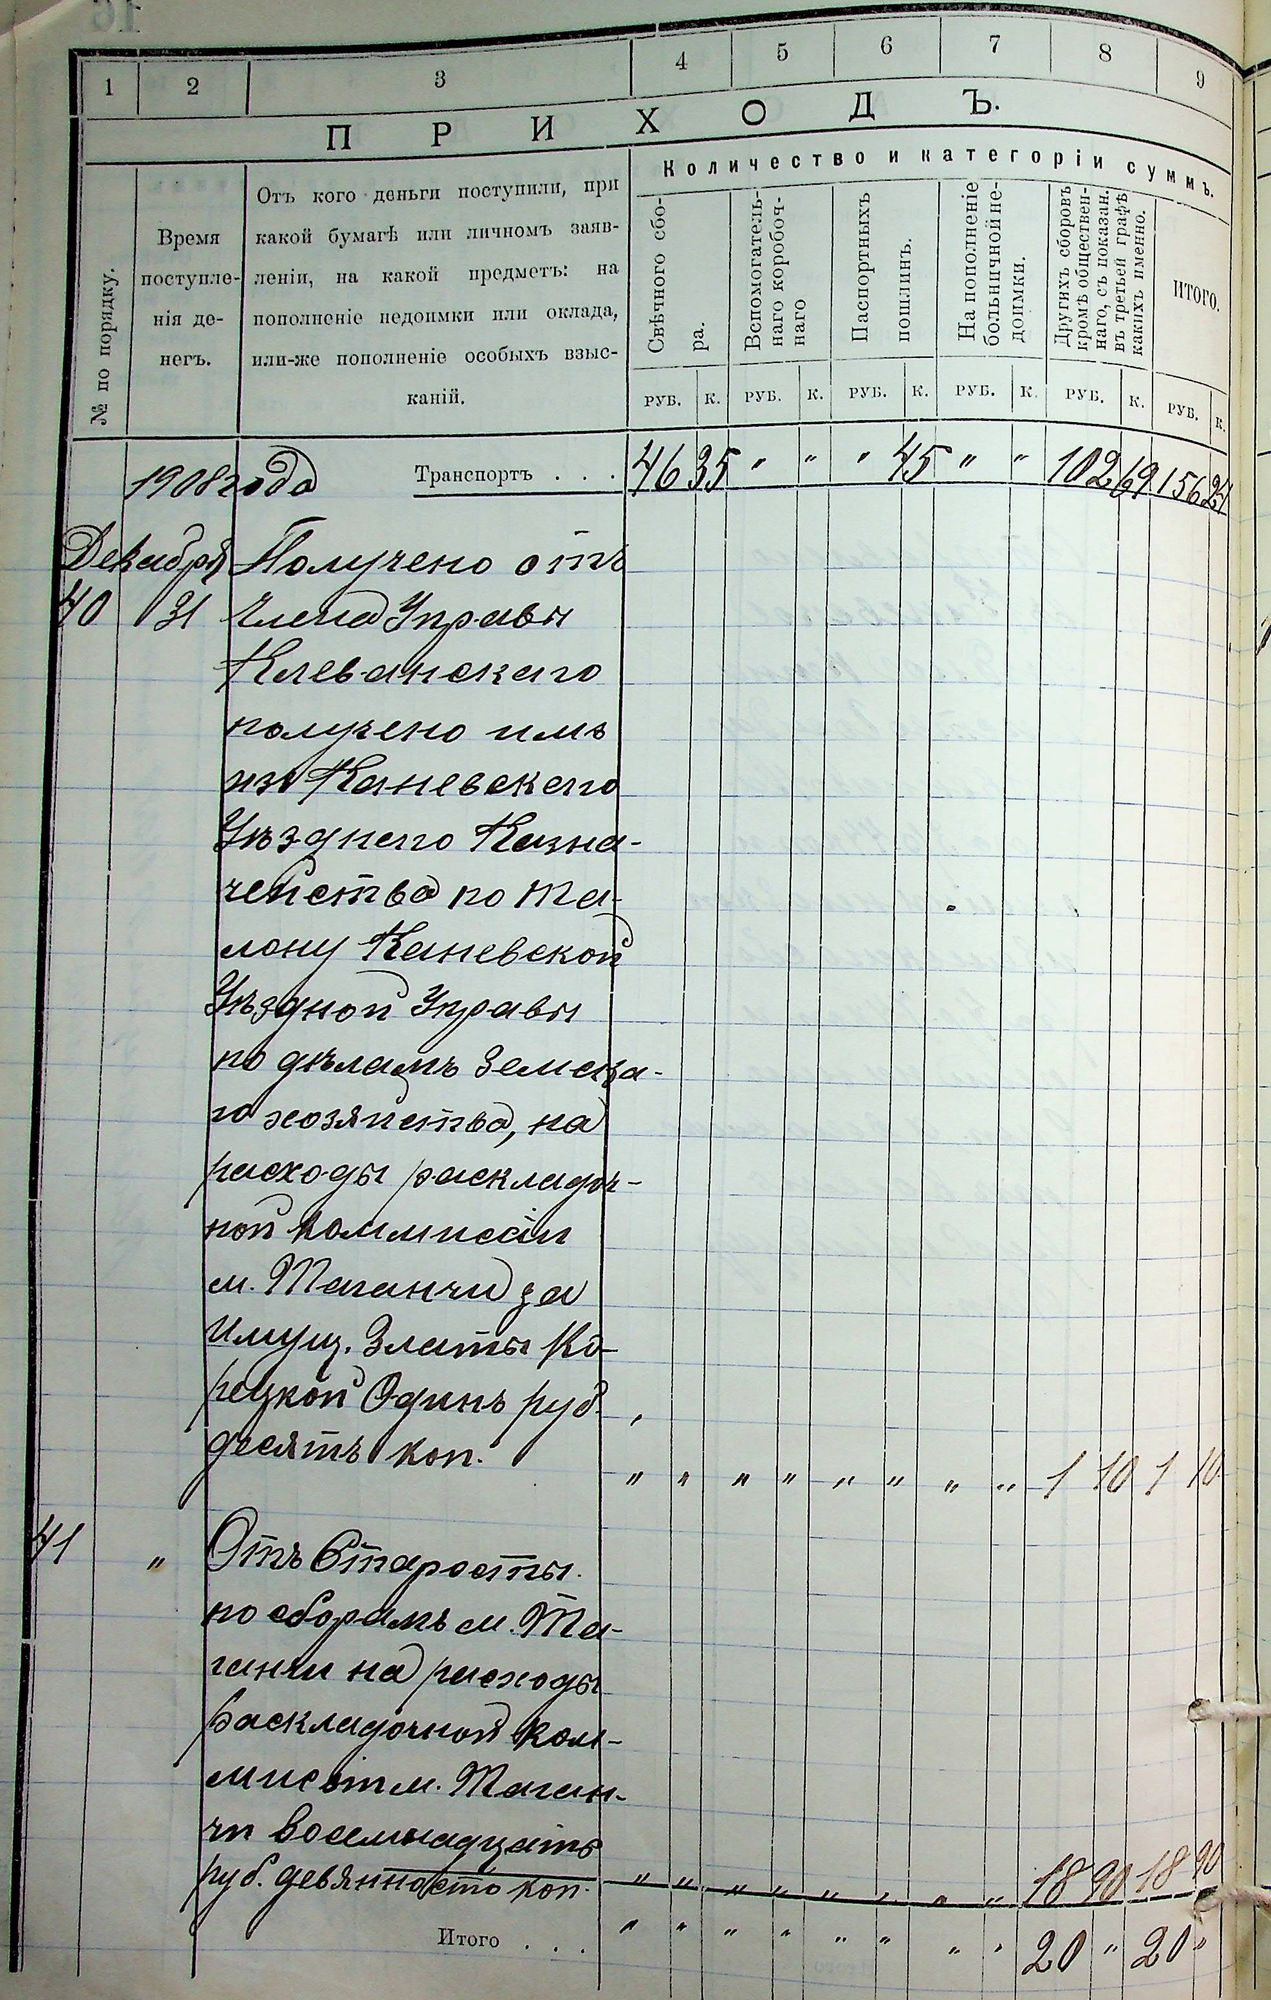 1 2 3 4 5 6 7 8 9
ПРИХОДЪ.
№ по порядку.
Время
поступле-
нія де-
негъ.
Отъ кого деньги поступили, при
какой бумагѣ или личномъ заяв-
леніи, на какой предметъ: на
пополненіе недоимки или оклада,
или-же пополненіе особыхъ взыс-
каній.
Количество и категоріи суммъ.
Свѣчного сбо-
ра.
Вспомогатель-
наго коробоч-
наго
Паспортныхъ
пошлинъ.
На пополненіе
больничной не-
доимки.
Другихъ сборовъ
кромѣ обществен-
наго, съ показан.
въ третьей графѣ
какихъ именно.
ИТОГО.
РУБ. К. РУБ. К. РУБ. К. РУБ. К. РУБ. К. РУБ. К.
1908 года Транспортъ . . . 46 35 " " " 45 " " 102 69 156 24
Декабря Получено отъ
40 31 Члена Управы
Клеванскаго
получено имъ
изъ Каневскаго
Уѣзднаго Казна-
чейства по та-
лону Каневской
Уѣздной Управы
по дѣламъ Земска-
го хозяйства, на
расходы раскладоч-
ной коммиссіи
м. Таганчи за
имущ. Златы Ко-
рецкой Одинъ руб.
десять коп. " " " " " " " " 1 10 1 10
41 " Отъ Старосты
по сборамъ м. Та-
ганчи на расходы
раскладочной ком-
мисіи м. Таган-
чи восемнадцать
руб. девянносто коп. " " " " " " " " 18 90 18 90
Итого . . . " " " " " " " " 20 " 20 "